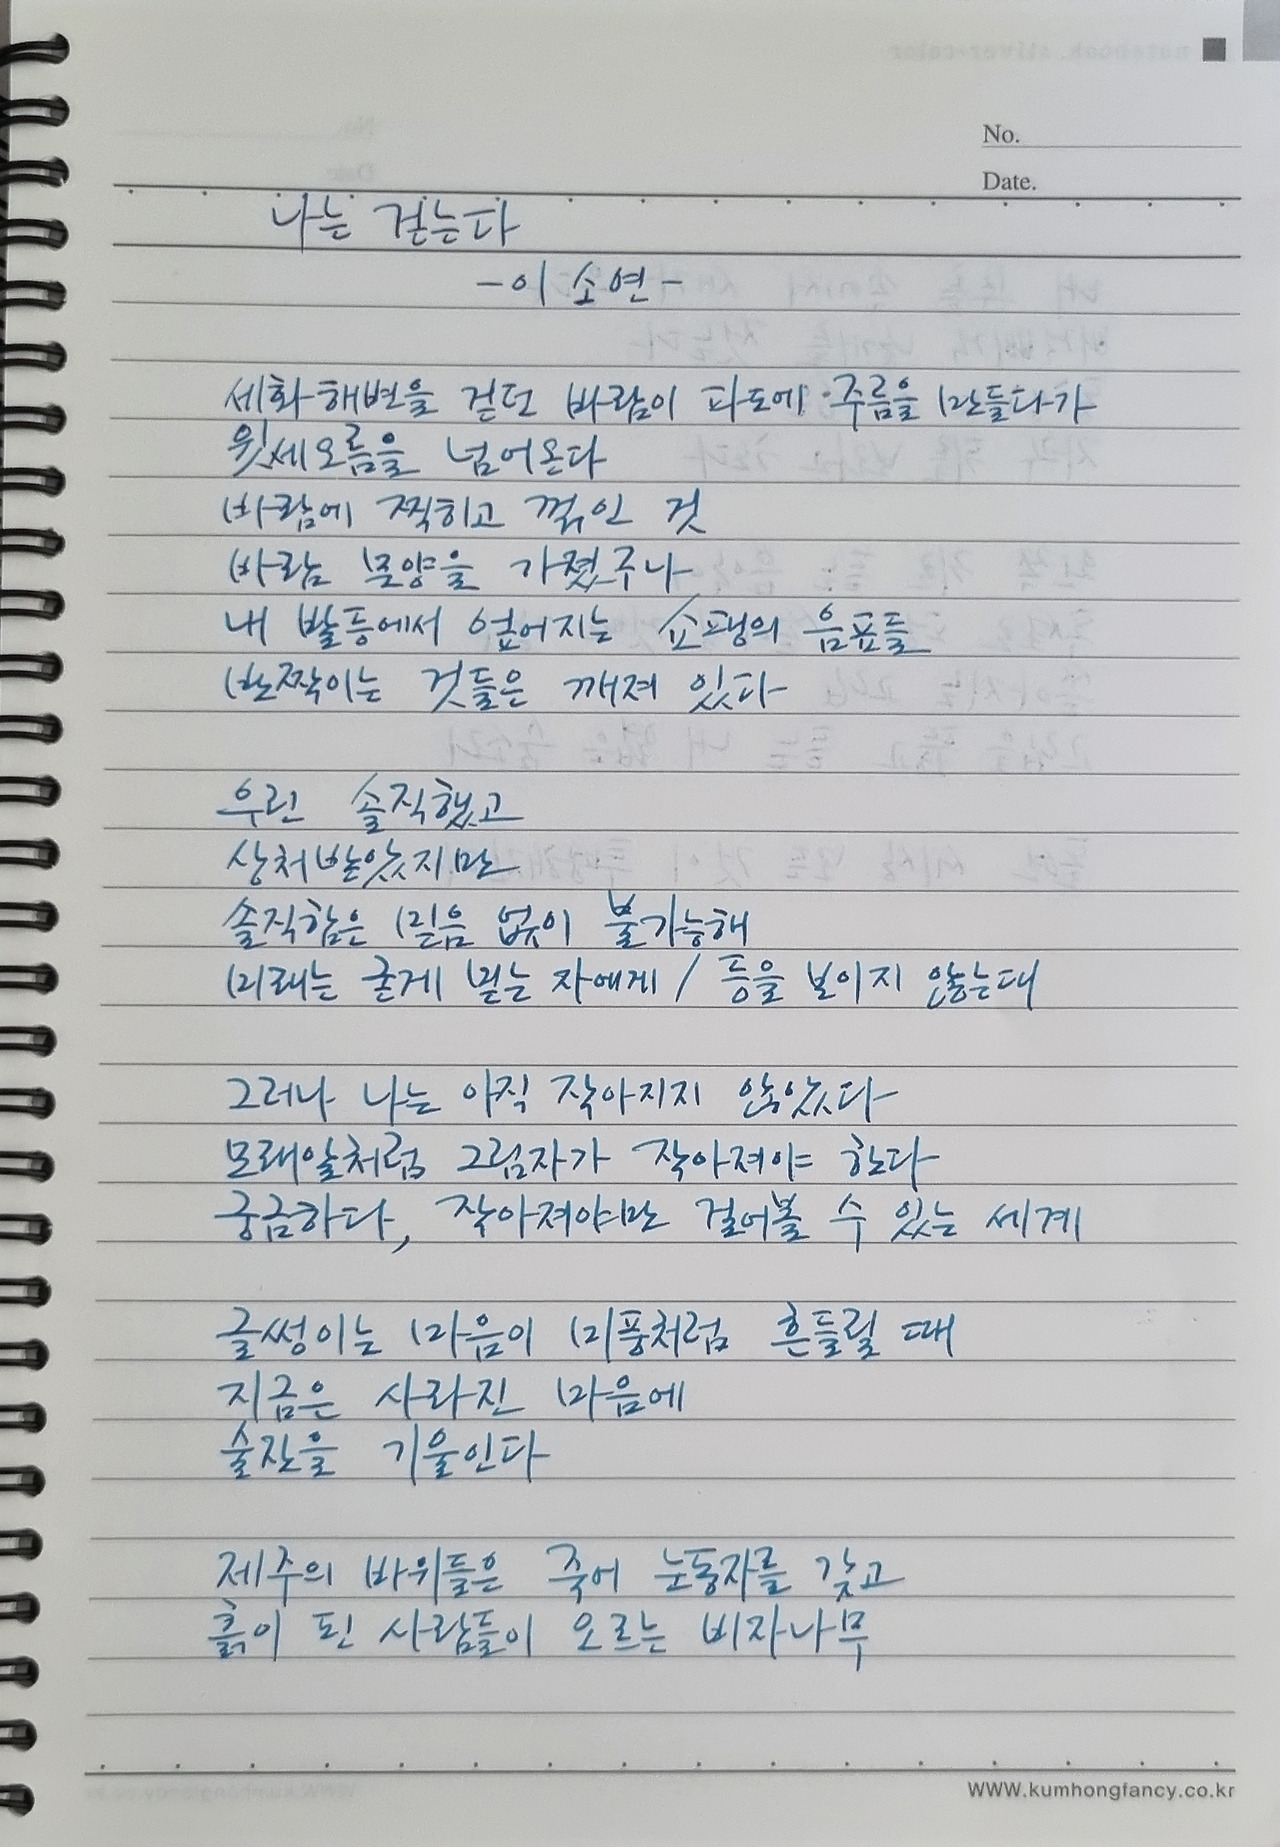 No.
Date.
나는 걷는다
-이소연-
세화해변을 걷던 바람이 파도에 주름을 만들다가
윗세오름을 넘어온다
바람에 찍히고 꺾인 것
바람 모양을 가졌구나
내 발등에서 엎어지는 쇼팽의 음표들
반짝이는 것들은 깨져 있다
우린 솔직했고
상처받았지만
솔직함은 믿음 없이 불가능해
미래는 굳게 믿는 자에게 / 등을 보이지 않는대
그러나 나는 아직 작아지지 않았다
모래알처럼 그림자가 작아져야 한다
궁금하다, 작아져야만 걸어볼 수 있는 세계
글썽이는 마음이 미풍처럼 흔들릴 때
지금은 사라진 마음에
술잔을 기울인다
제주의 바위들은 죽어 눈동자를 갖고
흙이 된 사람들이 오르는 비자나무
WWW.kumhongfancy.co.kr